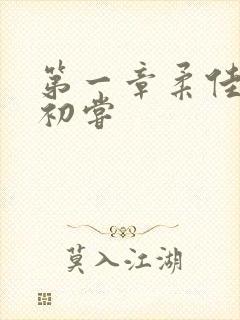 第一章柔佳
初尝
莫入江湖